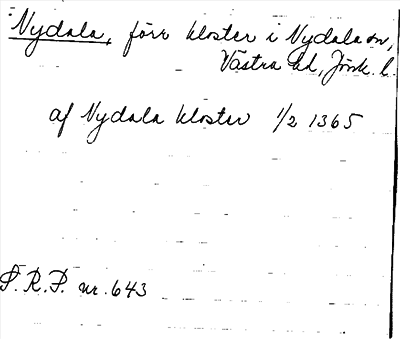 Nydala, förr kloster i Nydala sn,
Västra hd, Jönk. l.
af Nydala kloster 1/2 1365
S. R. P. nr. 643